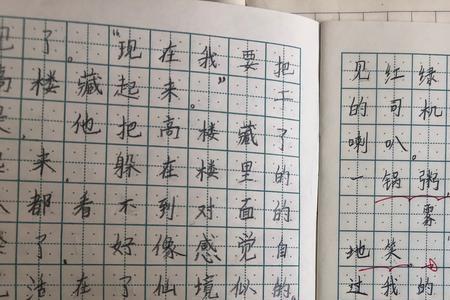 了。“现在我要把
高楼藏起来。”于
他把高楼藏了
来,躲在楼里的
人都看不到对面的
了,好像感觉自
活在了仙境似的。
见红绿
的司机
喇叭。
一锅粥
雾
地笑。
过我的